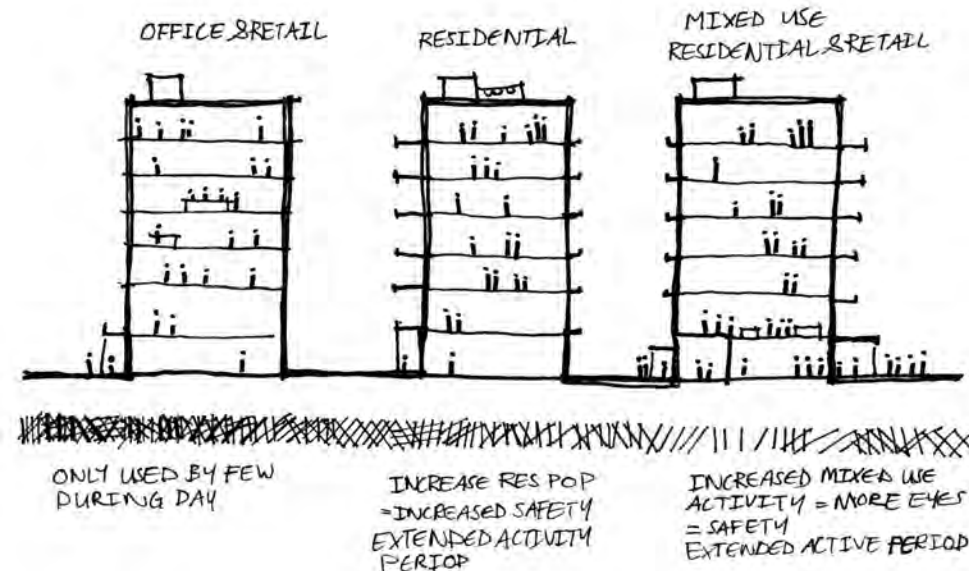 OFFICE & RETAIL
RESIDENTIAL
MIXED USE
RESIDENTIAL & RETAIL
ONLY USED BY FEW
DURING DAY
INCREASE RES POP
= INCREASED SAFETY
EXTENDED ACTIVITY
PERIOD
INCREASED MIXED USE
ACTIVITY = MORE EYES
= SAFETY
EXTENDED ACTIVE PERIOD